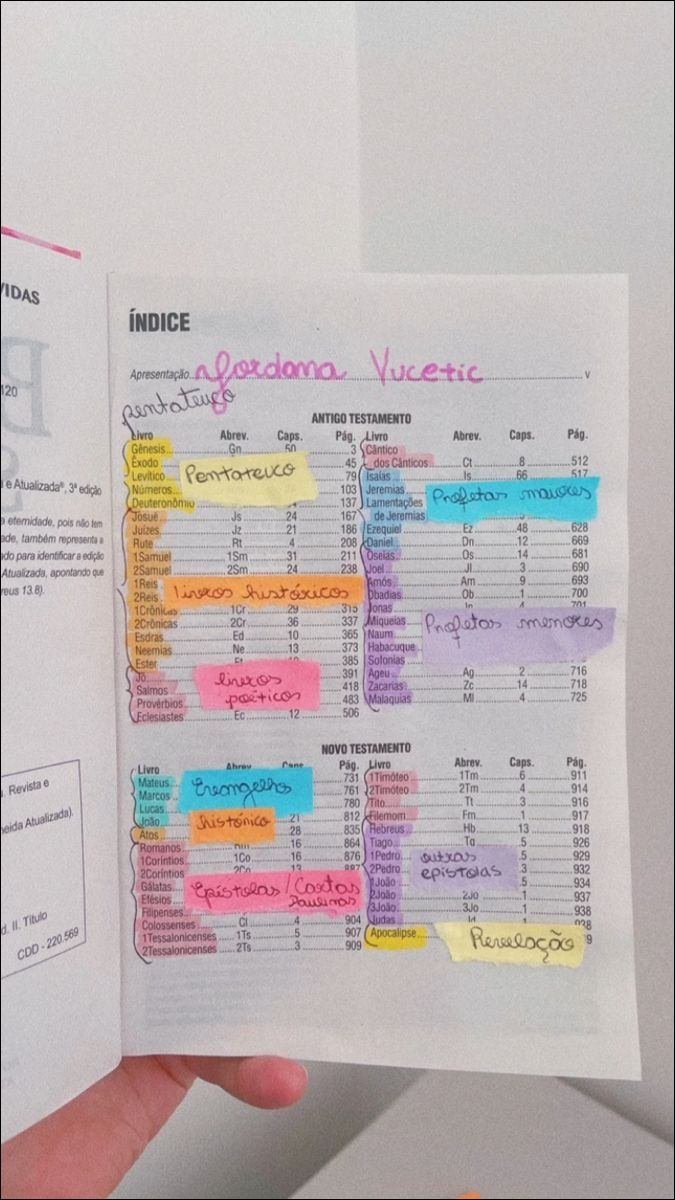 VIDAS
120
l e Atualizada®, 3ª edição
a eternidade, pois não tem
ade, também representa a
ado para identificar a edição
Atualizada, apontando que
reus 13.8).
. Revista e
neida Atualizada).
d. II. Título
CDD - 220.569
ÍNDICE
Apresentação Jordana Vucetic v
pentateuco
ANTIGO TESTAMENTO
Livro Abrev. Caps. Pág.
Gênesis Gn 50 3
Êxodo 45
Levítico 79
Pentateuco
Números 103
Deuteronômio 137
Josué Js 24 167
Juízes Jz 21 186
Rute Rt 4 208
1Samuel 1Sm 31 211
2Samuel 2Sm 24 238
1Reis
2Reis
livros históricos
1Crônicas 1Cr 29 315
2Crônicas 2Cr 36 337
Esdras Ed 10 365
Neemias Ne 13 373
Ester 385
Jó 391
Salmos 418
livros
poéticos
Provérbios 483
Eclesiastes Ec 12 506
Livro Abrev. Caps. Pág.
Cântico
dos Cânticos Ct 8 512
Isaías Is 66 517
Jeremias
Profetas maiores
Lamentações
de Jeremias
Ezequiel Ez 48 628
Daniel Dn 12 669
Oseias Os 14 681
Joel Jl 3 690
Amós Am 9 693
Obadias Ob 1 700
Jonas 701
Miqueias
Profetas menores
Naum
Habacuque
Sofonias
Ageu Ag 2 716
Zacarias Zc 14 718
Malaquias Ml 4 725
NOVO TESTAMENTO
Livro Abrev. Caps. Pág.
Mateus 731
Marcos 761
Evangelho
Lucas 780
João 21 812
Atos 28 835
histórico
Romanos Rm 16 864
1Coríntios 1Co 16 876
2Coríntios 2Co 13 887
Gálatas
Efésios
Epístolas/Cartas
Paulinas
Filipenses
Colossenses Cl 4 904
1Tessalonicenses 1Ts 5 907
2Tessalonicenses 2Ts 3 909
Livro Abrev. Caps. Pág.
1Timóteo 1Tm 6 911
2Timóteo 2Tm 4 914
Tito Tt 3 916
Filemom Fm 1 917
Hebreus Hb 13 918
Tiago Tg 5 926
1Pedro 5 929
2Pedro 3 932
outras
epístolas
1João 5 934
2João 2Jo 1 937
3João 3Jo 1 938
Judas Jd 1 938
Apocalipse
Revelação